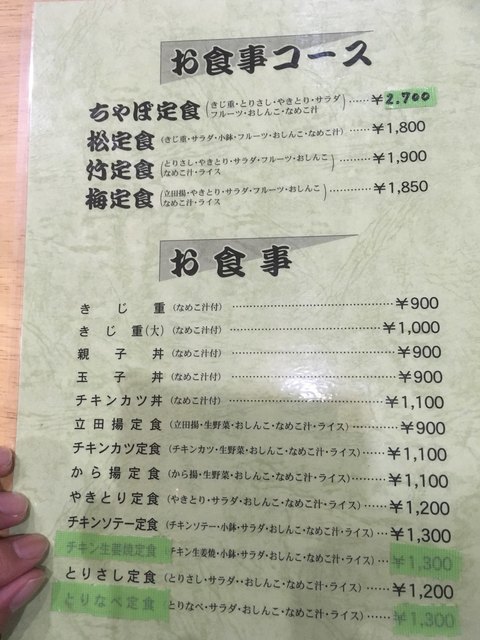 お食事コース
ちゃぼ定食(きじ重・とりさし・やきとり・サラダ フルーツ・おしんこ・なめこ汁)……¥2,700
松定食(きじ重・サラダ・小鉢・フルーツ・おしんこ・なめこ汁)……¥1,800
竹定食(とりさし・やきとり・サラダ・フルーツ・おしんこ なめこ汁・ライス)……¥1,900
梅定食(立田揚・やきとり・サラダ・フルーツ・おしんこ なめこ汁・ライス)……¥1,850
お食事
きじ重(なめこ汁付)……¥900
きじ重(大)(なめこ汁付)……¥1,000
親子丼(なめこ汁付)……¥900
玉子丼(なめこ汁付)……¥900
チキンカツ丼(なめこ汁付)……¥1,100
立田揚定食(立田揚・生野菜・おしんこ・なめこ汁・ライス)……¥900
チキンカツ定食(チキンカツ・生野菜・おしんこ・なめこ汁・ライス)…¥1,100
から揚定食(から揚・生野菜・おしんこ・なめこ汁・ライス)……¥1,100
やきとり定食(やきとり・サラダ・おしんこ・なめこ汁・ライス)……¥1,200
チキンソテー定食(チキンソテー・小鉢・サラダ・おしんこ・なめこ汁・ライス)…¥1,300
チキン生姜焼定食(チキン生姜焼・小鉢・サラダ・おしんこ・なめこ汁・ライス)…¥1,300
とりさし定食(とりさし・サラダ・・おしんこ・なめこ汁・ライス)……¥1,200
とりなべ定食(とりなべ・サラダ・おしんこ・なめこ汁・ライス)……¥1,300